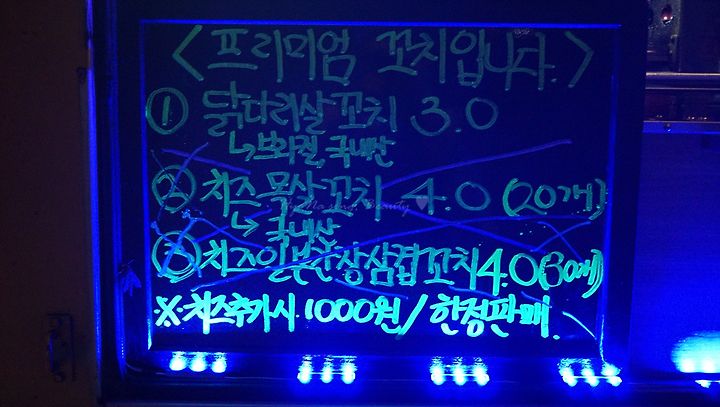 <프리미엄 꼬치입니다.>
① 닭다리살꼬치 3.0
↳브라질, 국내산
② 치즈목살꼬치 4.0 (20개)
↳국내산
③ 치즈 삼겹꼬치 4.0 (30개)
※치즈추가시 1000원/한정판매.
Beauty